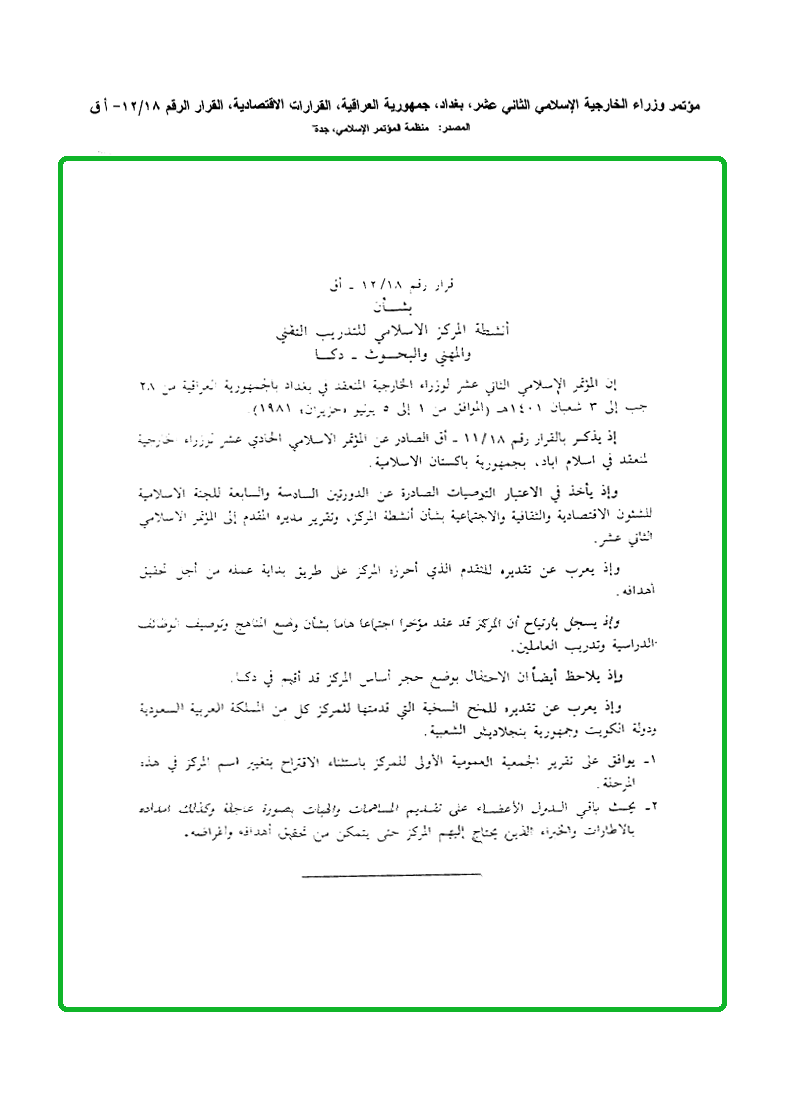 مؤتمر وزراء الخارجية الإسلامي الثاني عشر، بغداد، جمهورية العراقية، القرارات الاقتصادية، القرار الرقم ١٢/١٨- أ ق
المصدر: منظمة المؤتمر الإسلامي، جدة
قرار رقم ١٢/١٨ ـ أق
بشـــأن
أنشطة المركز الاسلامي للتدريب التقني
والمهني والبحـوث ـ دكـا
إن المؤتمر الإسلامي الثاني عشر لوزراء الخارجية المنعقد في بغداد بالجمهورية العراقية من ٢٨
جب إلى ٣ شعبان ١٤٠١هـ (الموافق من ١ إلى ٥ يونيو «حزيران» ١٩٨١).
إذ يذكـر بالقرار رقم ١١/١٨ ـ أق الصادر عن المؤتمر الاسلامي الحادي عشر لوزراء الخارجية
لمنعقد في اسلام اباد، بجمهورية باكستان الاسلامية.
وإذ يأخذ في الاعتبار التوصيات الصادرة عن الدورتين السادسة والسابعة للجنة الاسلامية
للشئون الاقتصادية والثقافية والاجتماعية بشأن أنشطة المركز، وتقرير مديره المقدم إلى المؤتمر الاسلامي
الثاني عشر.
وإذ يعرب عن تقديره للتقدم الذي أحرزه المركز على طريق بداية عمله من أجل تحقيق
أهدافه.
وإذ يسجل بارتياح أن المركز قد عقد مؤخرا اجتماعا هاما بشأن وضع المناهج وتوصيف الوظائف
الدراسية وتدريب العاملين.
وإذ يلاحظ أيضاً ان الاحتفال بوضع حجر أساس المركز قد أقيم في دكـا.
وإذ يعرب عن تقديره للمنح السخية التي قدمتها للمركز كل من المملكة العربية السعودية
ودولة الكويت وجمهورية بنجلاديش الشعبية.
١ـ يوافق على تقرير الجمعية العمومية الأولى للمركز باستثناء الاقتراح بتغيير اسم المركز في هذه
المرحلة.
٢ـ يحث باقي الـدول الأعضـاء على تقـديم المساهمات والهبات بصورة عاجلة وكذلك امداده
بالاطارات والخبراء الذين يحتاج إليهم المركز حتى يتمكن من تحقيق أهدافه واغراضه.